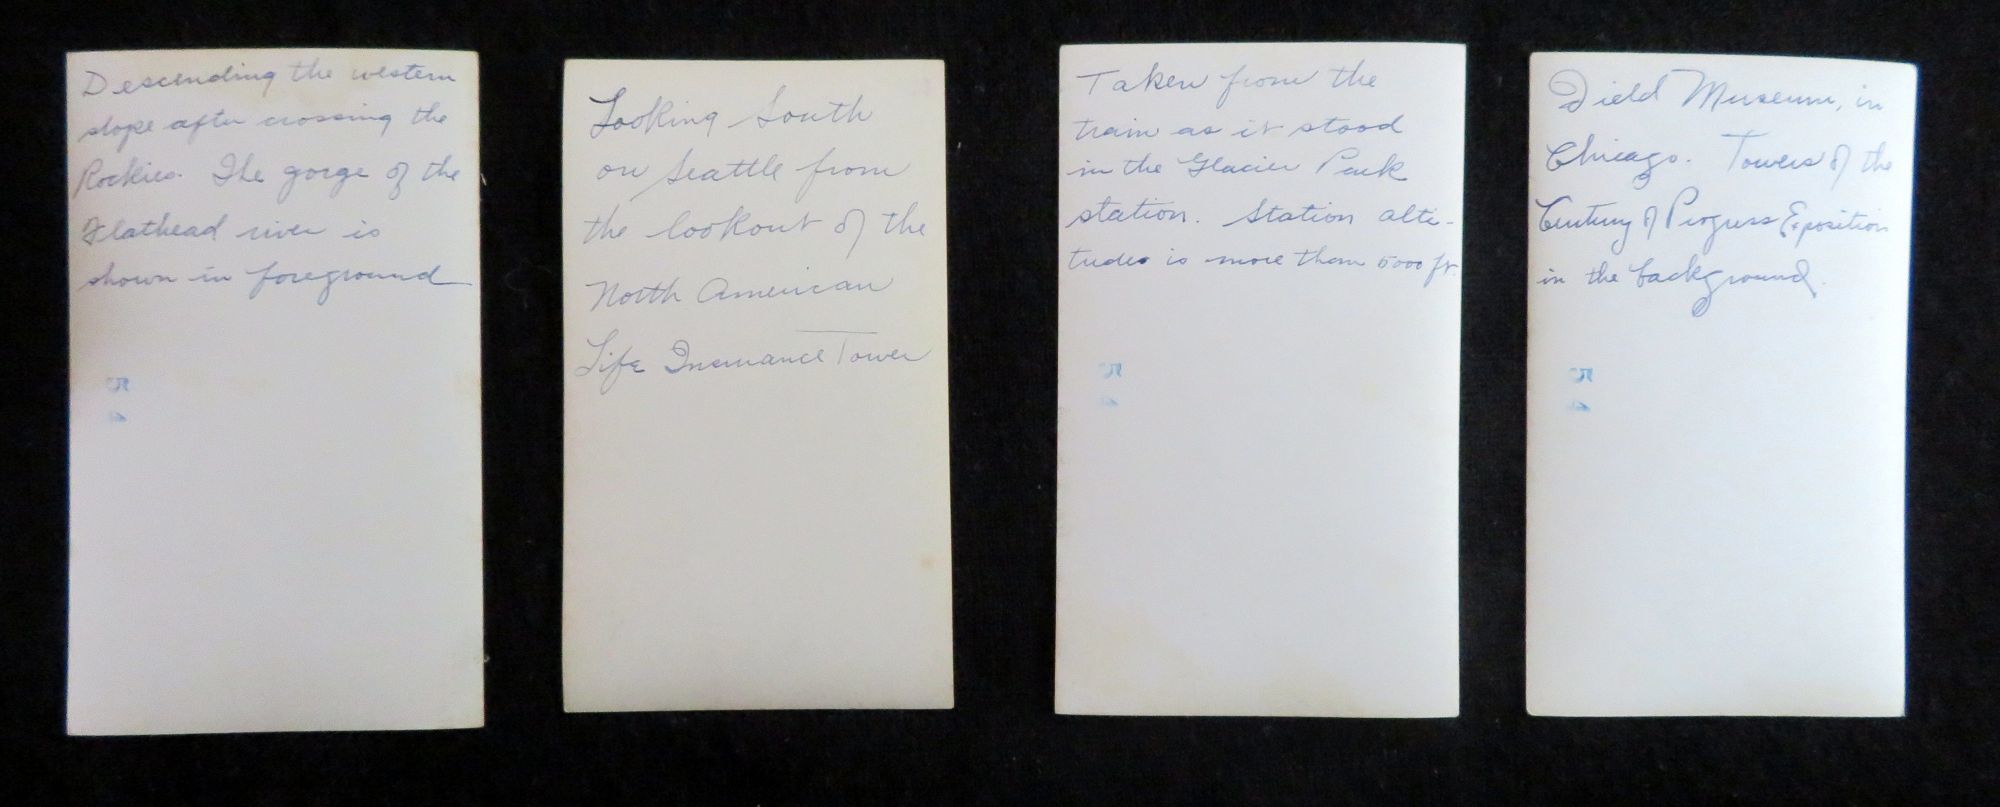 Descending the western
slope after crossing the
Rockies. The gorge of the
Flathead river is
shown in foreground
Looking South
on Seattle from
the lookout of the
North American
Life Insurance Tower
Taken from the
train as it stood
in the Glacier Park
station. Station alti-
tudes is more than 5000 ft.
Field Museum, in
Chicago. Towers of the
Century of Progress Exposition
in the background.